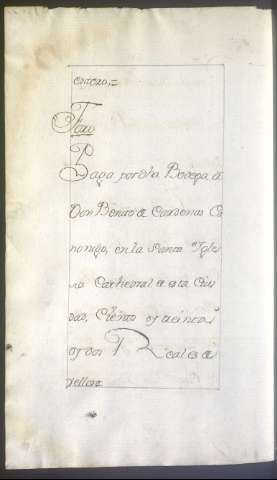 entero,=
Foro
Paga por dha Bodega, a
Don Benito de Cardenas Ca
nonigo, en la Santa Igle
sia Cathedral de esta Ciu
dad, Ciento
y dos Reales de
vellon